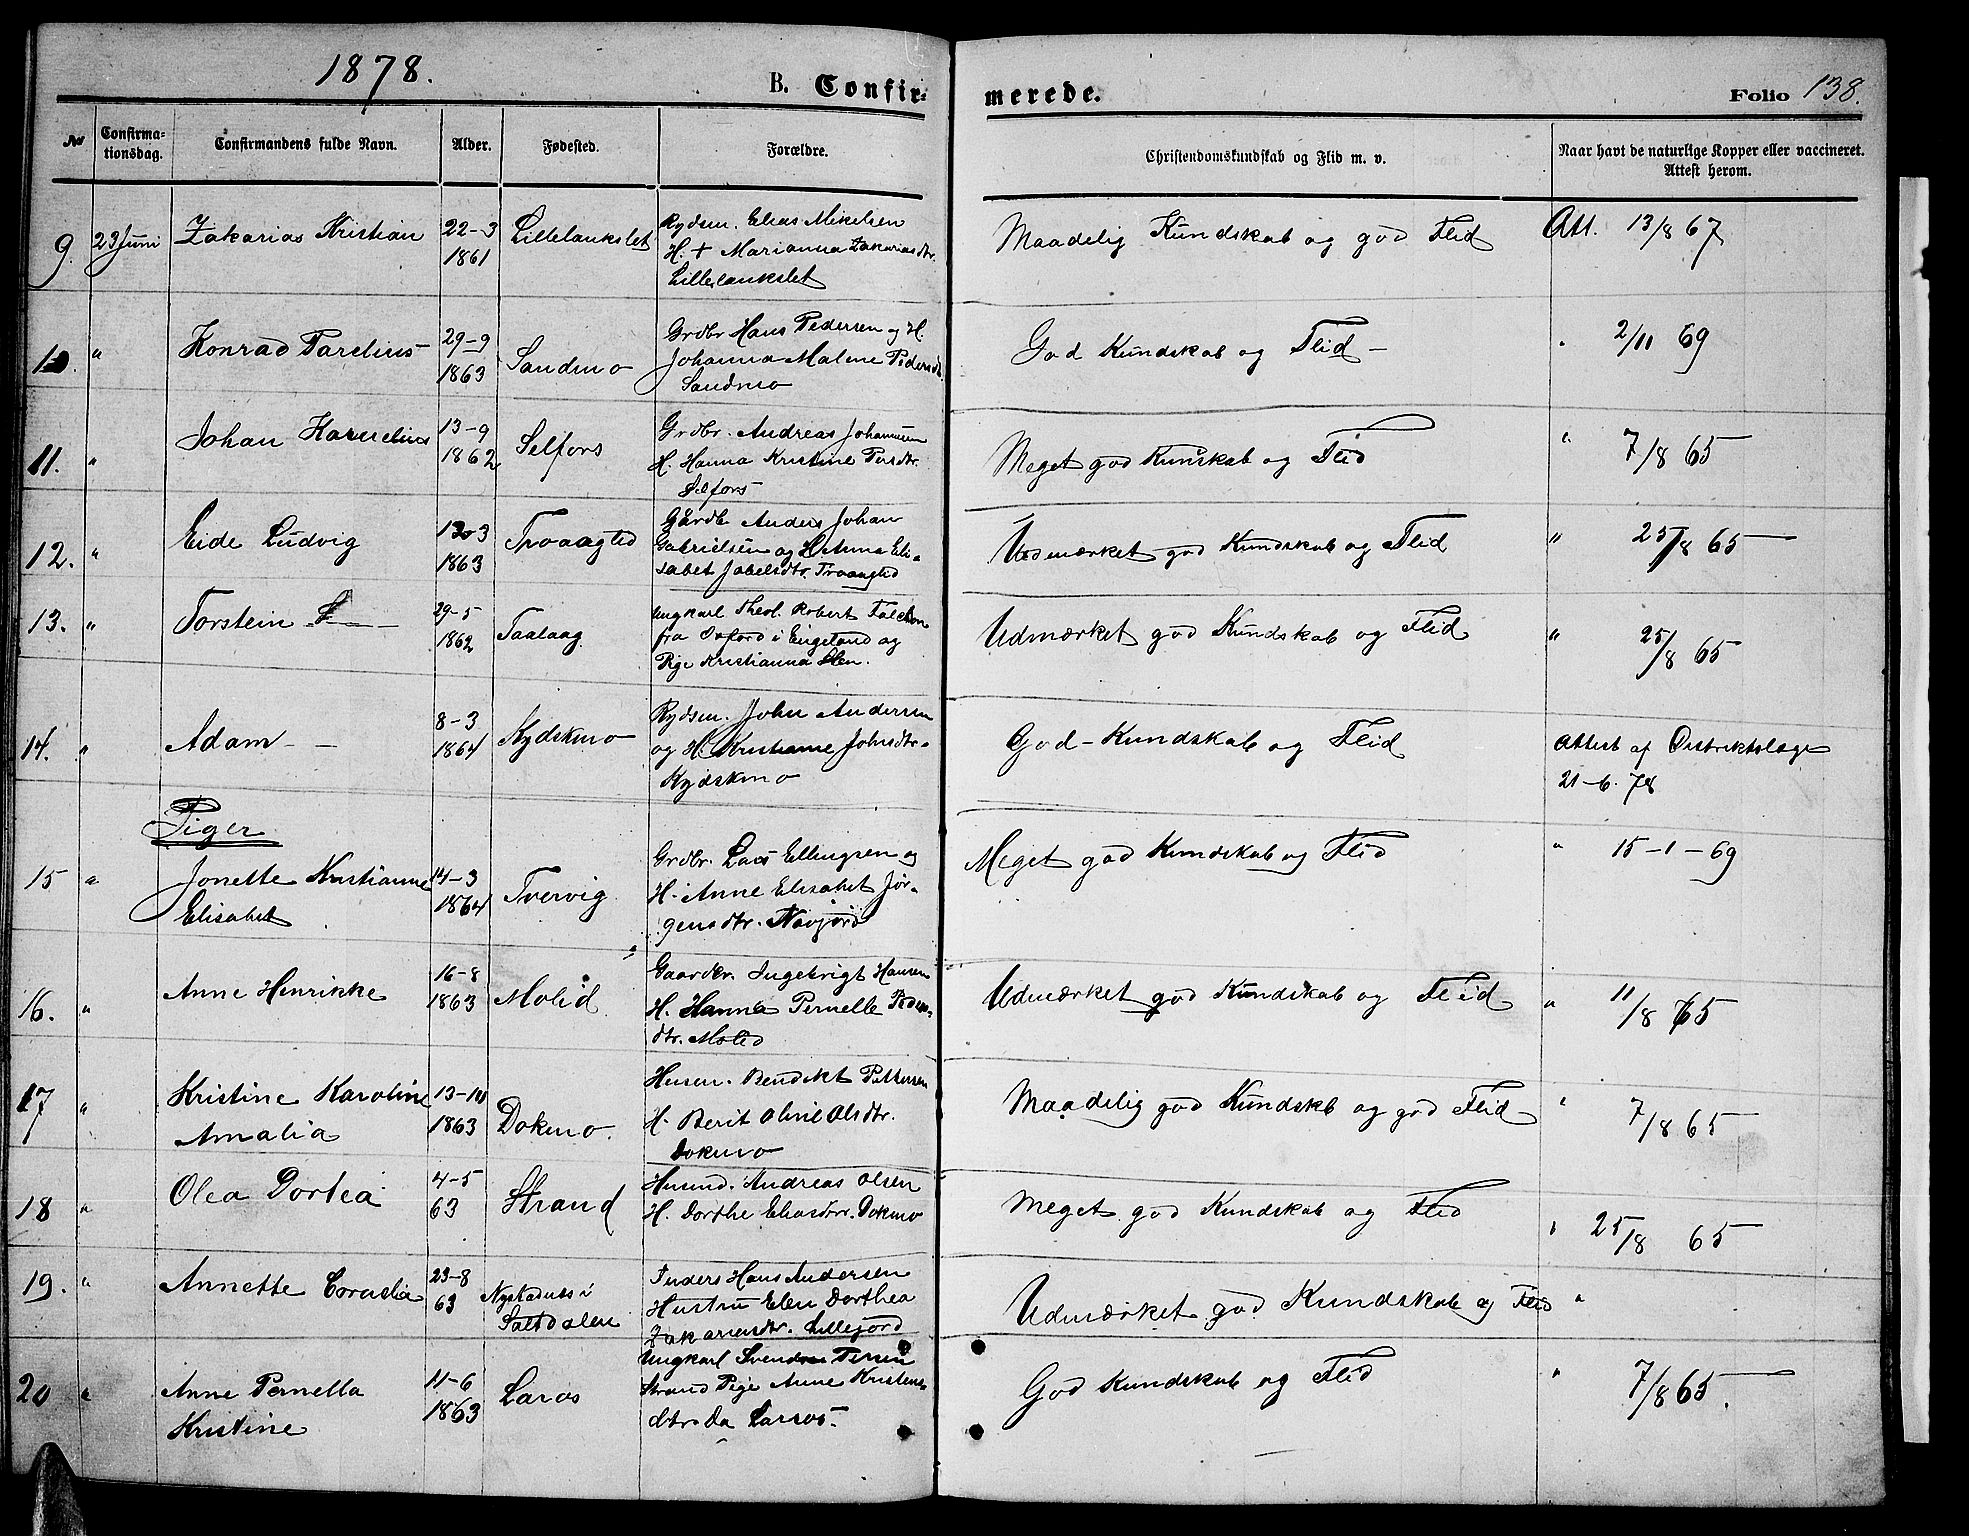 1878.
B. Confirmerede.
Folio 138.
No Confirmationsdag. Confirmandens fulde Navn. Alder. Fødested. Forældre. Christendomskundskab og Flid m. v. Naar havt de naturlige Kopper eller vaccineret. Attest herom.
9. 23 Juni Zakarias Kristian 22-3 1861 Lillelankslet Rydsm. Elias Mikelsen
H. + Marianna Zakariasdtr.
Lillelankslet
Maadelig Kundskab og god Flid Att. 13/8 67
10. " Konrad Parelius 29-9 1863 Sandmo Grdbr Hans Pedersen og H.
Johanna Malene Pedersdtr.
Sandmo
God Kundskab og Flid " 2/11 69
11. " Johan Kornelius 13-9 1862 Selfors Grdbr. Andreas Johannesen
H. Hanna Kristine Persdtr.
Selfors
Meget god Kunskab og Flid " 7/8 65
12. " Eide Ludvig 1863 Troaagted Gårdbr Anders Johan
Gabrielsen og H. Anna Eli-
sabet Jobelsdtr. Troaagted
Udmærket god Kundskab og Flid " 25/8 65
13. " Torstein 29-5 1862 Taalaag Ungkarl Theol. Robert
fra Oxford i Engeland og
Pige Kristianna Olsen.
Udmærket god Kundskab og Flid " 25/8 65
14. " Adam 8-3 1864 Kydskmo Rydsm. John Andersen
og H. Kristianne Johnsdtr.
Kydskmo
God Kundskab og Flid Attest af Distriktslæge
21-6. 78
Piger
15 " Jonette Kristianne 14-3 1864 Tvervig Grdbr. Lars Ellingsen og
Elisabet H. Anne Elisabet Jør-
gensdtr. Navjord
Meget god Kundskab og Flid " 15-1-69
16. " Anne Henrikke 16-8 1863 Molid Gaardbr. Ingebrigt Hansen
H. Hanna Pernelle Peders-
dtr. Molid
Udmærket god Kundskab og Flid " 11/8 65
17 " Kristine Karoline 1863 Dokmo. Husm. Bendikt Pettersen
Amalia H. Berit Oline Olsdtr.
Dokmo
Maadelig god Kundskb og god Flid " 7/8 65
18 " Olea Dortea 4-5 63 Strand Husmd. Andreas Olsen
H. Dorthe Eliasdtr. Dokmo
Meget god Kundskab og Flid " 25/8 65
19. " Annette Cornelia 23-8 63 i Saltdalen Inders Hans Andersen
Hustru Elen Dorthea
Zakariasdtr. Lillejord
Udmærket god Kundskab og Flid "
20 " Anne Pernella 11-6 1863 Laros Ungkarl
Kristine Strand Pige Anne Kristens-
dtr.
God Kundskab og Flid " 7/8 65.